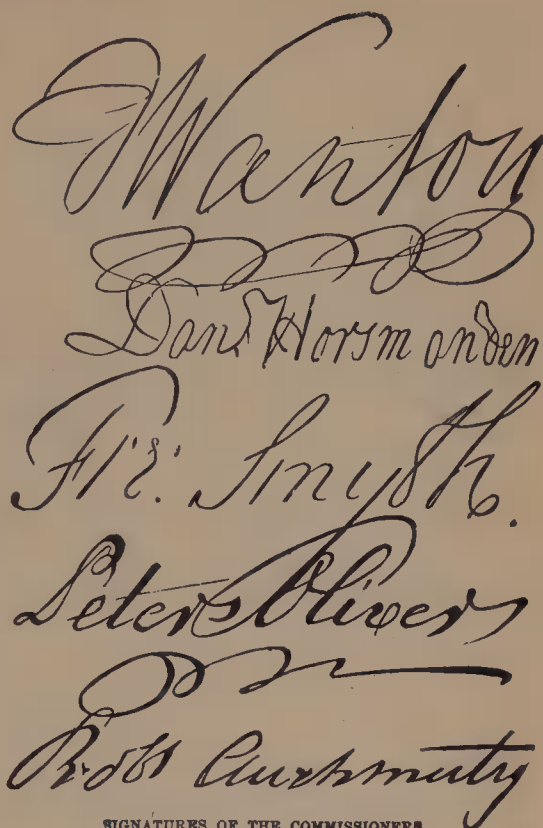 J Wanton
Dan^l Horsmanden
Fre: Smyth.
Peter Oliver
Rob^t Auchmuty
SIGNATURES OF THE COMMISSIONERS